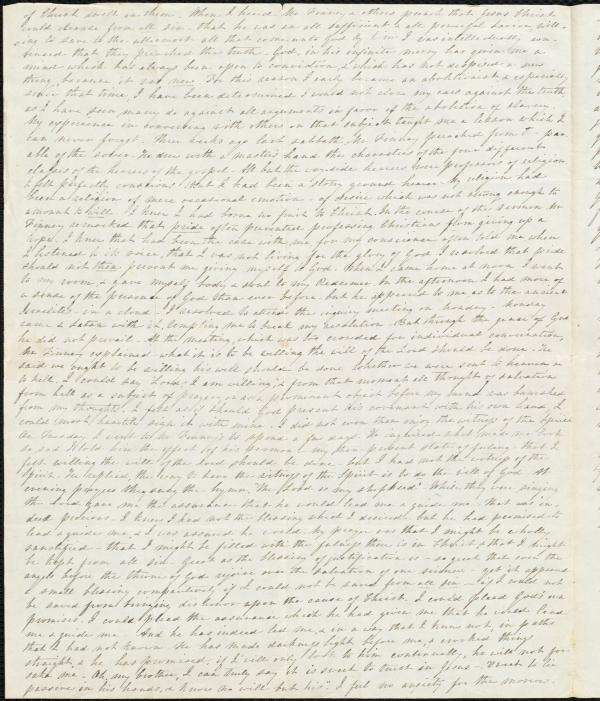 of Christ dwelt in them. When I heard Mr Finney & others preach that Jesus Christ
could cleanse from all sin. That he was an all sufficient & all powerful Savior, will-
ing to save to the uttermost all that come unto God by him I was intellectually con-
vinced that they preached the truth. God, in his infinite mercy has given me a
mind which has always been open to conviction, & which has not despised a new
thing, because it was new. For this reason I early became an abolitionist & especially,
since that time, I have been determined I would not close my ears against the truth
as I have seen many do against all arguments in favor of the abolition of slavery.
My experience in conversing with others on that subject taught me a lesson which I
can never forget. Three weeks ago last sabbath, Mr Finney preached from the par-
able of the sower. He drew with a master's hand the characters of the four different
classes of the hearers of the gospel. All but the wayside hearers were professors of religion
I felt perfectly conscious that I had been a stony ground hearer. My religion had
been a religion of mere occasional emotion, of desire which was not strong enough to
amount to will. I knew I had borne no fruit to Christ. In the course of the sermon Mr
Finney remarked that pride often prevented professing Christians from giving up a
hope. I knew that had been the case with me for my conscience often told me when
I listened to its voice, that I was not living for the glory of God. I resolved that pride
should not then prevent me giving myself to God. When I came home at noon I went
to my room & gave myself body & soul to my Redeemer. In the afternoon I had more of
a sense of the presence of God than ever before, but he appeared to me as to the ancient
Israelites in a cloud. I resolved to attend the inquiry meeting on Monday. Monday
came & Satan with it, tempting me to break my resolution. But through the grace of God
he did not prevail. At the meeting, which was too crowded for individual conversation,
Mr Finney explained what it is to be willing the will of the Lord should be done. He
said we ought to be willing his will should be done whether we were sent to heaven or
to hell. I could say Lord, I am willing, & from that moment all thought of salvation
from hell as a subject of prayer, or as a prominent object before my mind was banished
from my thoughts. I felt as if should God present his covenant with his own hand, I
could most heartily sign it with mine. I did not even then enjoy the witness of the Spirit
On Tuesday I went to Mr Finney's to spend a few days. He inquired what made me look
so sad. I told him the effect of his sermon & my then present state of feeling that I
felt willing the will of the Lord should be done but I had not the witness of the
Spirit. He replied, the way to have the witness of the Spirit is to do the will of God. At
evening prayers they sung the hymn, "The Lord is my shepherd". While they were singing
the Lord gave me the assurance that he would lead me & guide me. That was in-
deed precious. I knew I had not the blessing which I desired, but he had promised to
lead & guide me, & I was assured he would. My prayer was that I might be wholly
sanctified - that I might be filled with the fulness there is in Christ, & that I might
be kept from all sin. Great as the blessing of justification is - so great that even the
angels before the throne of God rejoice over the salvation of one sinner - yet it appeared
a small blessing comparatively if I could not be saved from all sin - if I could not
be saved from bringing dishonor upon the cause of Christ. I could plead God's own
promises. I could plead the assurance which he had given me that he would lead
me & guide me. And he has indeed led me, & in a way that I knew not, in paths
that I had not known. He has made darkness light before me, & crooked things
straight, & he has promised, if I will only look to him continually, he will not for-
sake me. Oh, my brother, I can truly say it is sweet to trust in Jesus - sweet to lie
passive in his hands, & know no will but his". I feel no anxiety for the morrow.